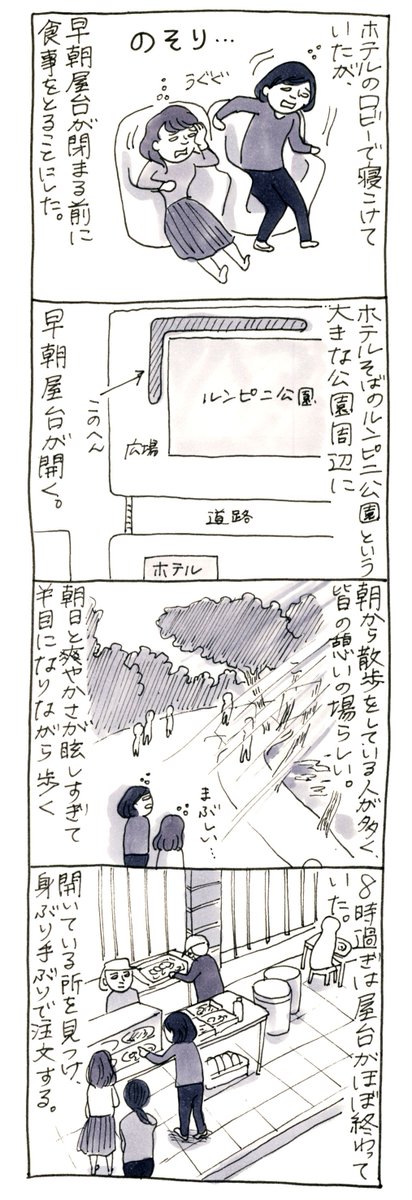 ホテルのロビーで寝こけて
いたが、
のそり…
うぐぐ
早朝屋台が閉まる前に
食事をとることにした。
ホテルそばのルンピニ公園という
大きな公園周辺に
ルンピニ公園
広場
このへん
道路
ホテル
早朝屋台が開く。
朝から散歩をしている人が多く、
皆の憩いの場らしい。
まぶしい…
朝日と爽やかさが眩しすぎて
半目になりながら歩く
8時過ぎは屋台がほぼ終わって
いた。
開いている所を見つけ、
身ぶり手ぶりで注文する。